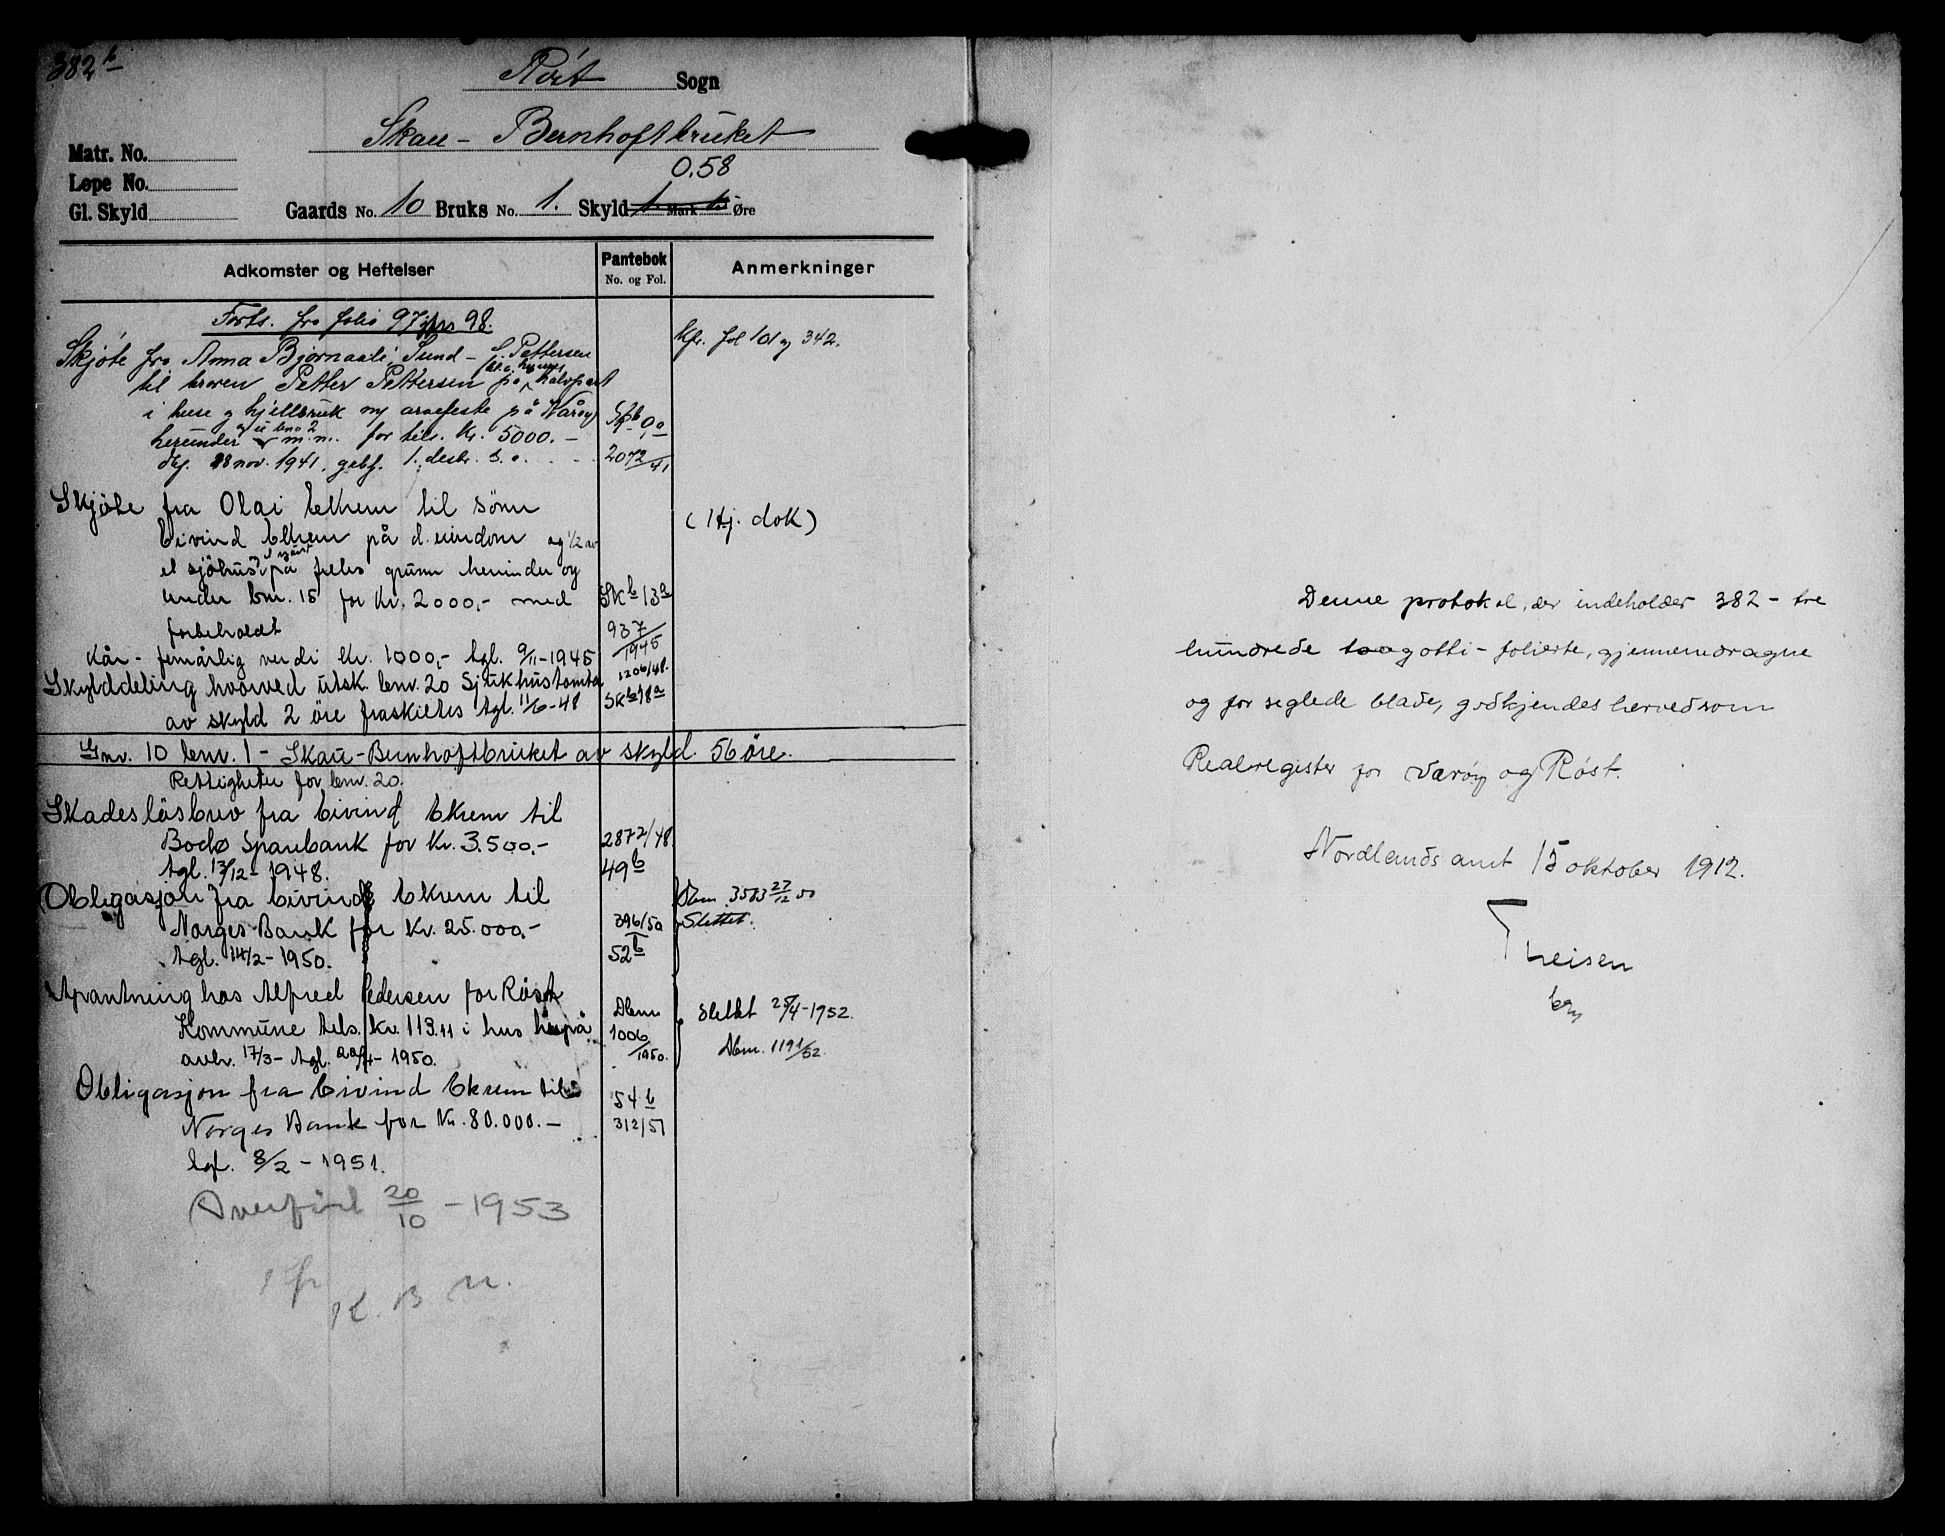 382 b
Røst Sogn
Skau - Bernhoftbruket
Matr. No.
0.58
Løpe No.
Gl. Skyld
Gaards No. 10 Bruks No. 1. Skyld Mark Øre
Adkomster og Heftelser
Pantebok
No. og Fol.
Anmerkninger
Forts. fra folio 97 98.
Kfr. fol 101 og 342.
Skjøte fra Anna Bjørnaali, Sund - Pettersen
til broren Petter Pettersen på halvpart
i huse og hjellbruk arvefeste på
og u bno 2
herunder m.m. for tils. Kr. 5000.-
dg. 28 nov. 1941, 1. desbr. s.a.
2072/41
Skjöte fra Olai Ekrem til sönn
(Hj. dok)
Eivind Ekrem på d. eiendom og 1/2 av
et sjöhus på felles grunn herunder og
under bnr. 15 for Kr. 2000,- med
Sk b 13 a
forbeholdt
937/1945
Kår - femårlig verdi kr. 1000,- tgl. 9/11-1945
Skylddeling hvorved utsk. bnr. 20 Sjukhustomta
1206/48.
av skyld 2 öre fraskiltes tgl. 11/6-48
Sk b 18 a
Gnr. 10 bnr. 1 - Skau-Bernhoftbruket av skyld 56 öre.
Rettigheter for bnr. 20.
Skadeslösbrev fra Eivind Ekrem til
Bodø Sparebank for Kr. 3.500,-
2872/48.
tgl. 13/12-1948.
49 b
Obligasjon fra Eivind Ekrem til
Dbnr. 3563 27/12 50
Norges Bank for Kr. 25.000,-
396/50
Slettet.
tgl. 14/2-1950.
52 b
Utpantning hos Alfred Pedersen for Røst
Dbnr.
slettet 25/4-1952.
Kommune tils. kr. 113.11 i hus
1006/1950.
Dbnr. 1191/52.
avh. 17/3- tgl. 22/4-1950.
Obligasjon fra Eivind Ekrem til
54 b
Norges Bank for Kr. 80.000.-
312/51
tgl. 8/2-1951.
Overført 20/10 - 1953
K. B. N.
Denne protokol, der indeholder 382 - tre
hundrede og otti - folierte, gjennemdragne
og forseglede blade, godkjendes herved som
Realregister for Værøy og Røst.
Nordlands amt 15 oktober 1912.
Theisen